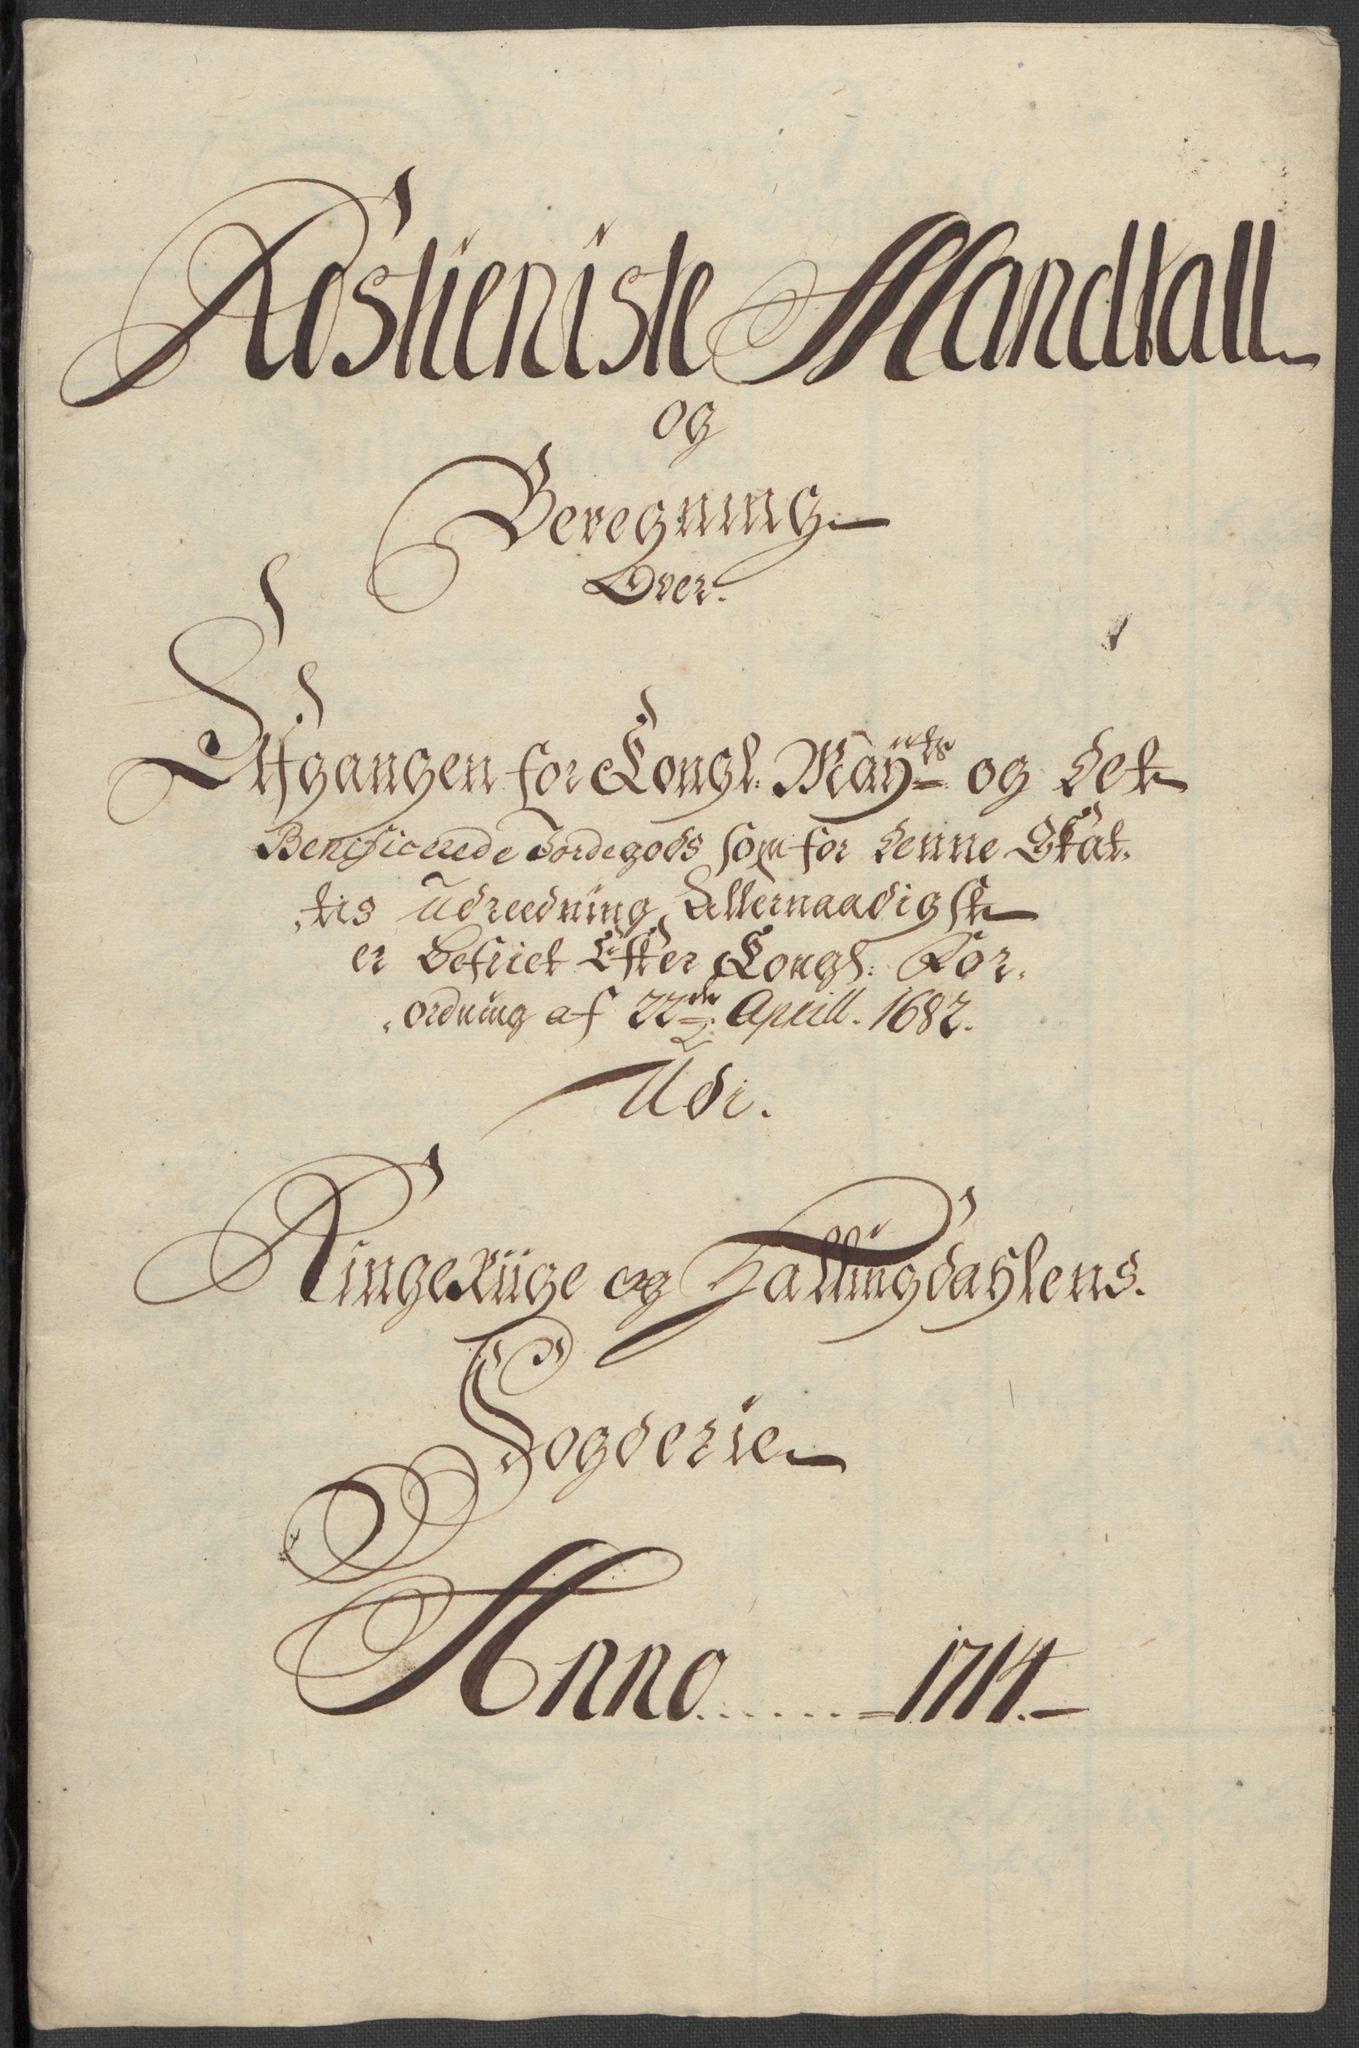 Rostieniste Mandtall
og
Beregning
Over.
Afgangen for Kongl: Mayts og det
Benificerede Jordegods som for denne Skat-
tis Udreedning Allernaadigst
er befriet Efter Kongl: For-
ordning af 22de Aprill. 1682.
Udi.
Ringeriige og Hallingdahlens.
Fogderie
Anno ...... 1714.